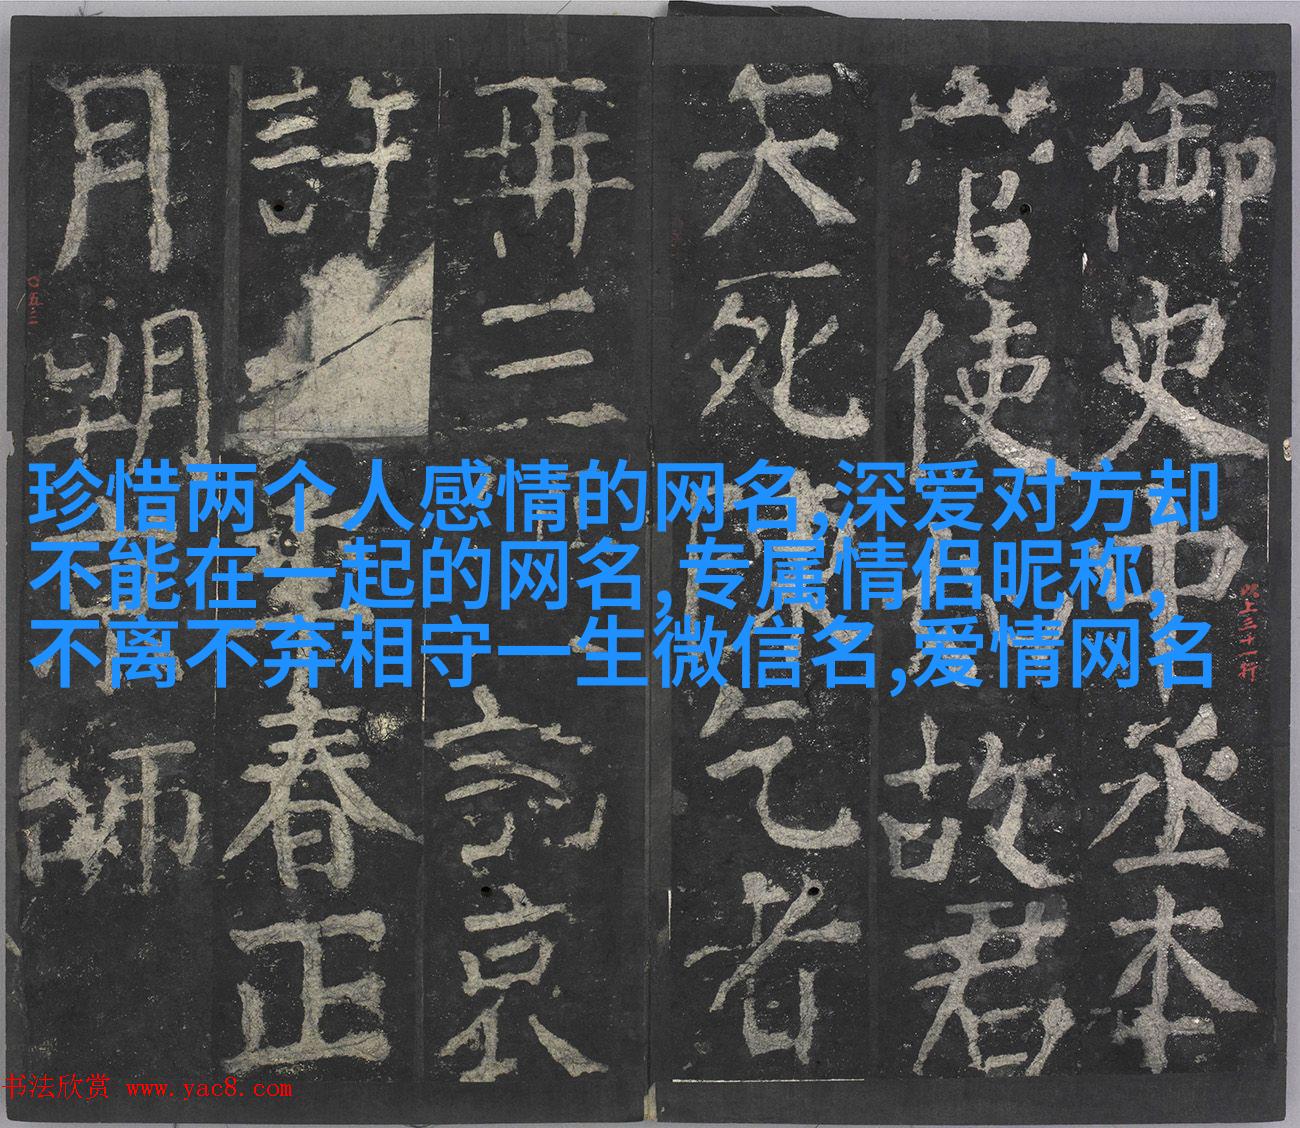 珍惜两个人感情的网名,深爱对方却
不能在一起的网名,专属情侣昵称,
不离不弃相守一生微信名,爱情网名
御史中丞本
當使故君
死乞者
再三京
許春正
月朔師
此上三十一行
〇五三
书法欣赏 www.yac8.com